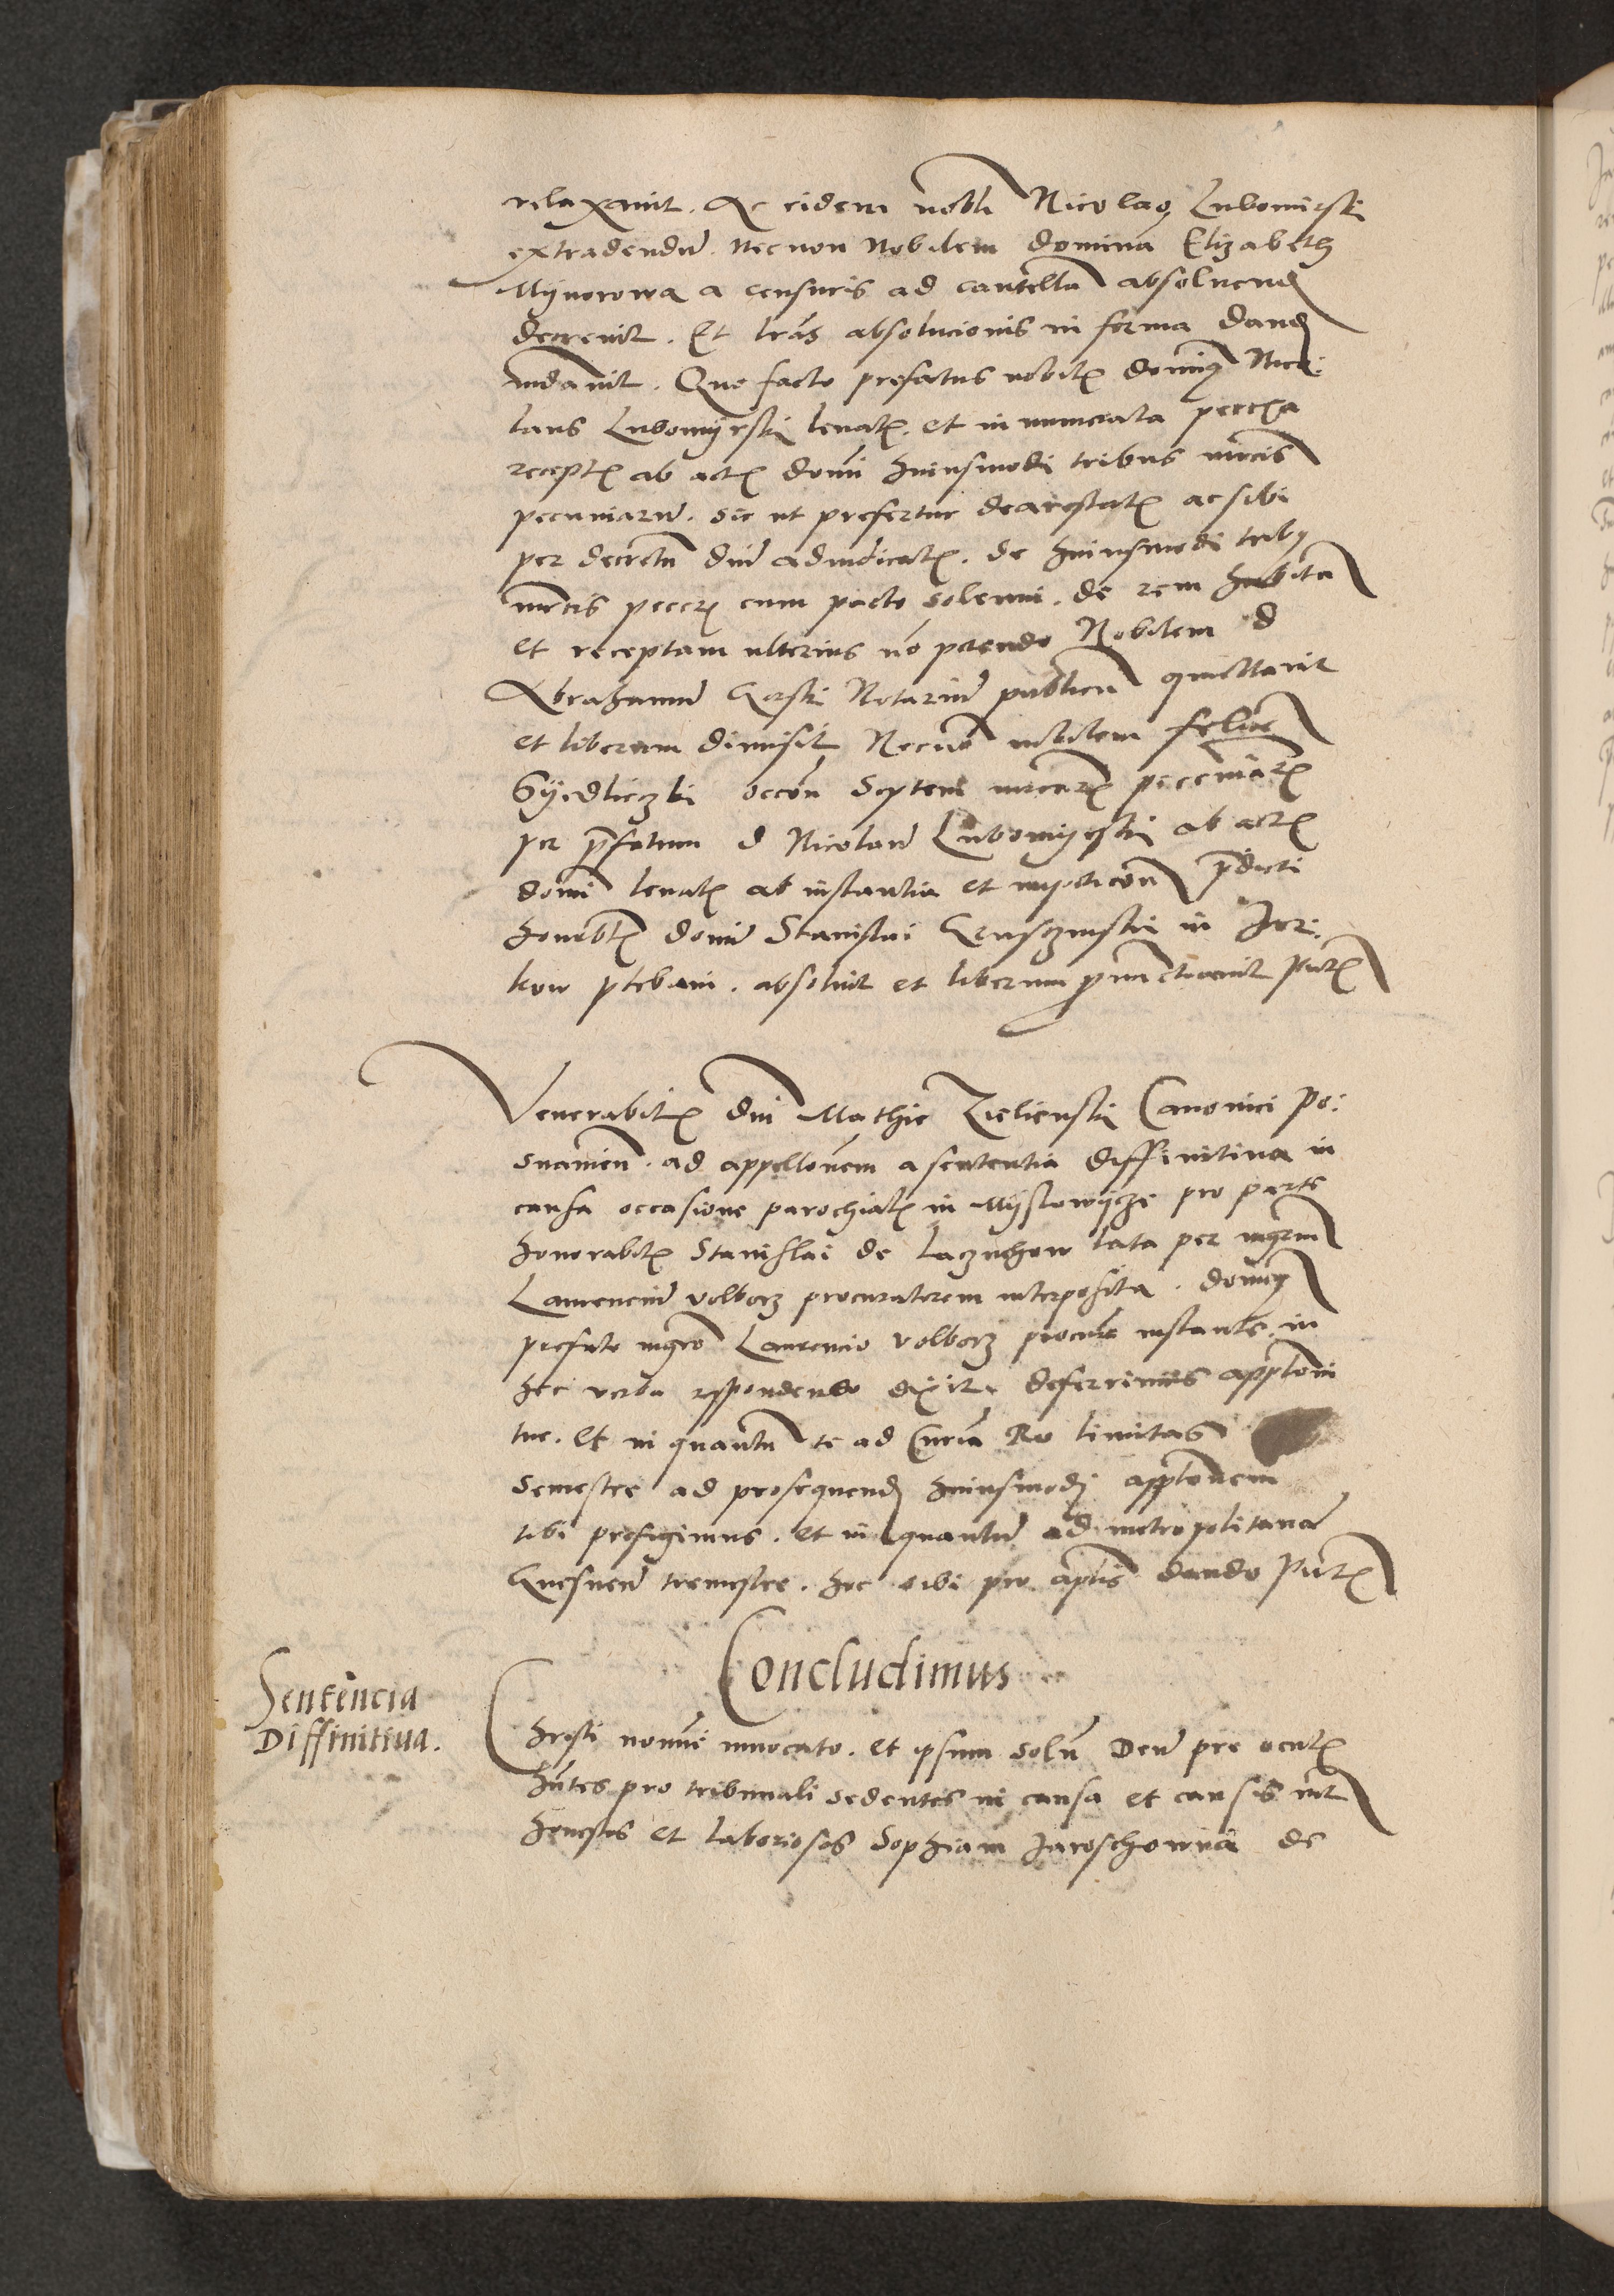 relaxauit. Ac eidem nobli Nicolao Lubomirski
extradendum. Necnon Nobilem dominã Elizabeth
Mynorowa a censuris ad cautellã absoluend
decreuit. Et lrãs absolucionis in forma dand
mdauit. Quo facto prefatus nobil dominus Nico:
laus Lubomyrski leuat. et in numerata peccia
recept ab act domi huiusmodi tribus mrcis
pecuniarum. sic ut prefertur dearestat ac sibi
per decretũ dni adiudicat. de huiusmodi tribus
mrcis peccs cum pacto solenni. de rem habitã
et receptam ulterius nõ petendo Nobilem d
Abrahamum Gorski Notarium publicũ quittauit
et liberum dimisit Necnõ nobilem felicẽ
Syedlieczki occõn Septem mrcar pecuniar
per pfatum d Nicolaum Lubomyrski ab act
domi leuat ab instantia et impeticõn pdicti
honorabl domi Stanislai Grusczinski in Jer:
kow plebani. absoluit et liberum pnunctiauit Pntˀ
Venerabil dni Mathie Zielienski Canonici Po:
snanien. ad appellõnem a sententia diffinitiua in
causa occasione parochial in Myslowycze pro parte
honorabil Stanislai de Laczuchow lata per mgrm
Laurencium volborz procuratorem interposita. dominus
prefato mgro Laurencio volborz procure instante. in
hec verba respondendo dixit. deferrimus appellõni
tue. et in quantũ te ad Curiã Ro limitas
Semestre ad prosequend huiusmodi appellõnem
tibi prefigimus. et in quantum ad metropolitanã
Gnesnen tremestre. hec sibi pro aplis dando Pntˀ
Concludimus
Sentencia
Diffinitiua.
Christi nomine inuocato. et ipsum solũ Deum pre ocul
hñtes pro tribunali sedentes in causa et causis int
honestos et laboriosos Sophiam Jaroschownã de